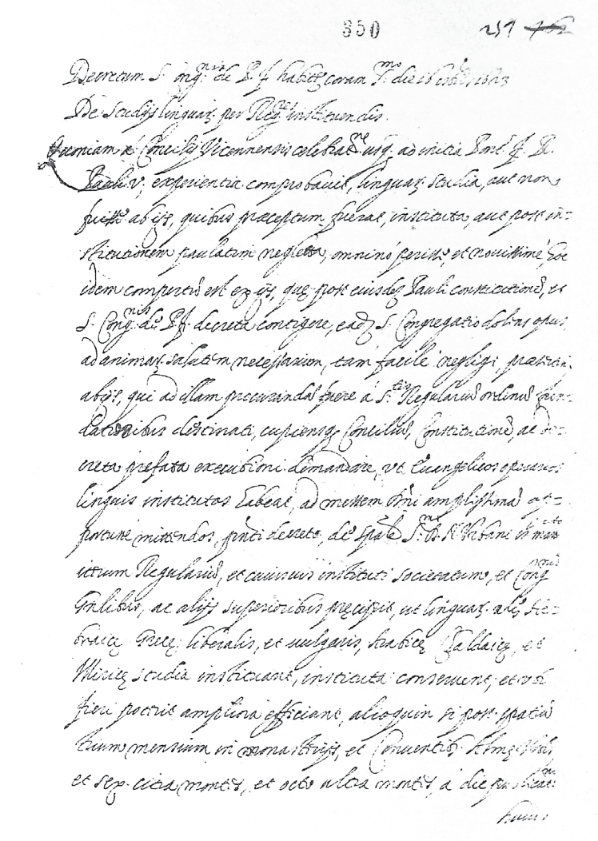 350 257
Decretum S. Cong.nis de P. F. habitæ coram S.mo die 16 octobris 1623
De Studijs linguar. per Reg.es instituendis.
Quoniam à Concilij Viennensis celebrat.ne usq. ad initia Pont. f. R.
Pauli V, experientia comprobavit, linguar. studia, aut non
fuisse ab ijs, quibus præceptum fuerat, instituta, aut post in-
stitutionem paulatim neglecta, omninò perisse, et novissimè, hoc
idem compertum est ex ijs, quæ post eiusdem Pauli constitutionē, et
S. Cong.nis de P. f. decreta contigere, eadē S. Congregatio dolens opus,
ad animar. salutem necessarium, tam facile negligi, præsertim
ab ijs, qui ad illam procurandā fuere à S.tis Regulariū ordinū fun-
datoribus destinati, cupiensq. Concilium, Constitutionē, ac de-
creta prefata executioni demandare, ut Evangelicos operarios
linguis institutos habeat, ad messem Dñi amplissimā op-
portune mittendos, pñti decreto, de spāli S.mi D. N. Urbani VIII man.to
ictum Regulariū, et cuiusvis instituti societatum, et Cong.num
Gñlibus, ac alijs superioribus præcipit, ut linguar. nēpe He-
braicę, Grecę, liberalis, et vulgaris, Arabicę, Caldaicę, et
Illiricę studia instituant, instituta conservent, et ubi
fieri poterit ampliora efficiant, alioquin si post spatiū
trium mensium in monasterijs, et Conventib. Almę Urbis,
et sex citra montes, et octo ultra montes, à die publicat.nis
huius